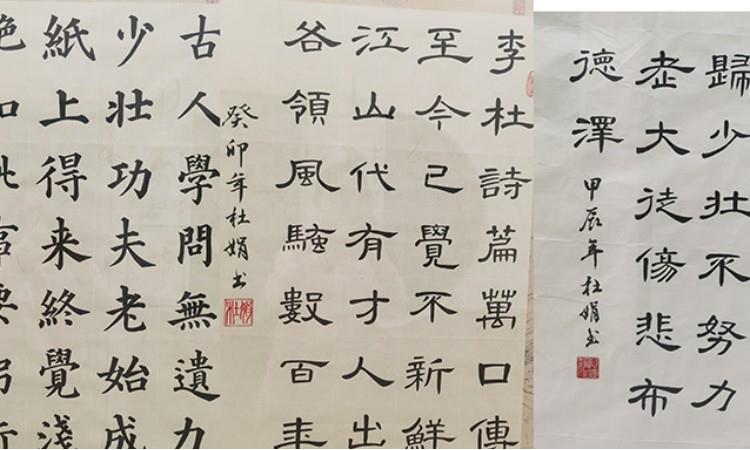 古人學問無遺力
少壯功夫老始成
紙上得来終覺淺
李杜詩篇萬口傳
至今已覺不新鮮
江山代有才人出
各領風騷數百年
癸卯年杜娟书
歸少壯不努力
老大徒傷悲布
德澤
甲辰年杜娟书